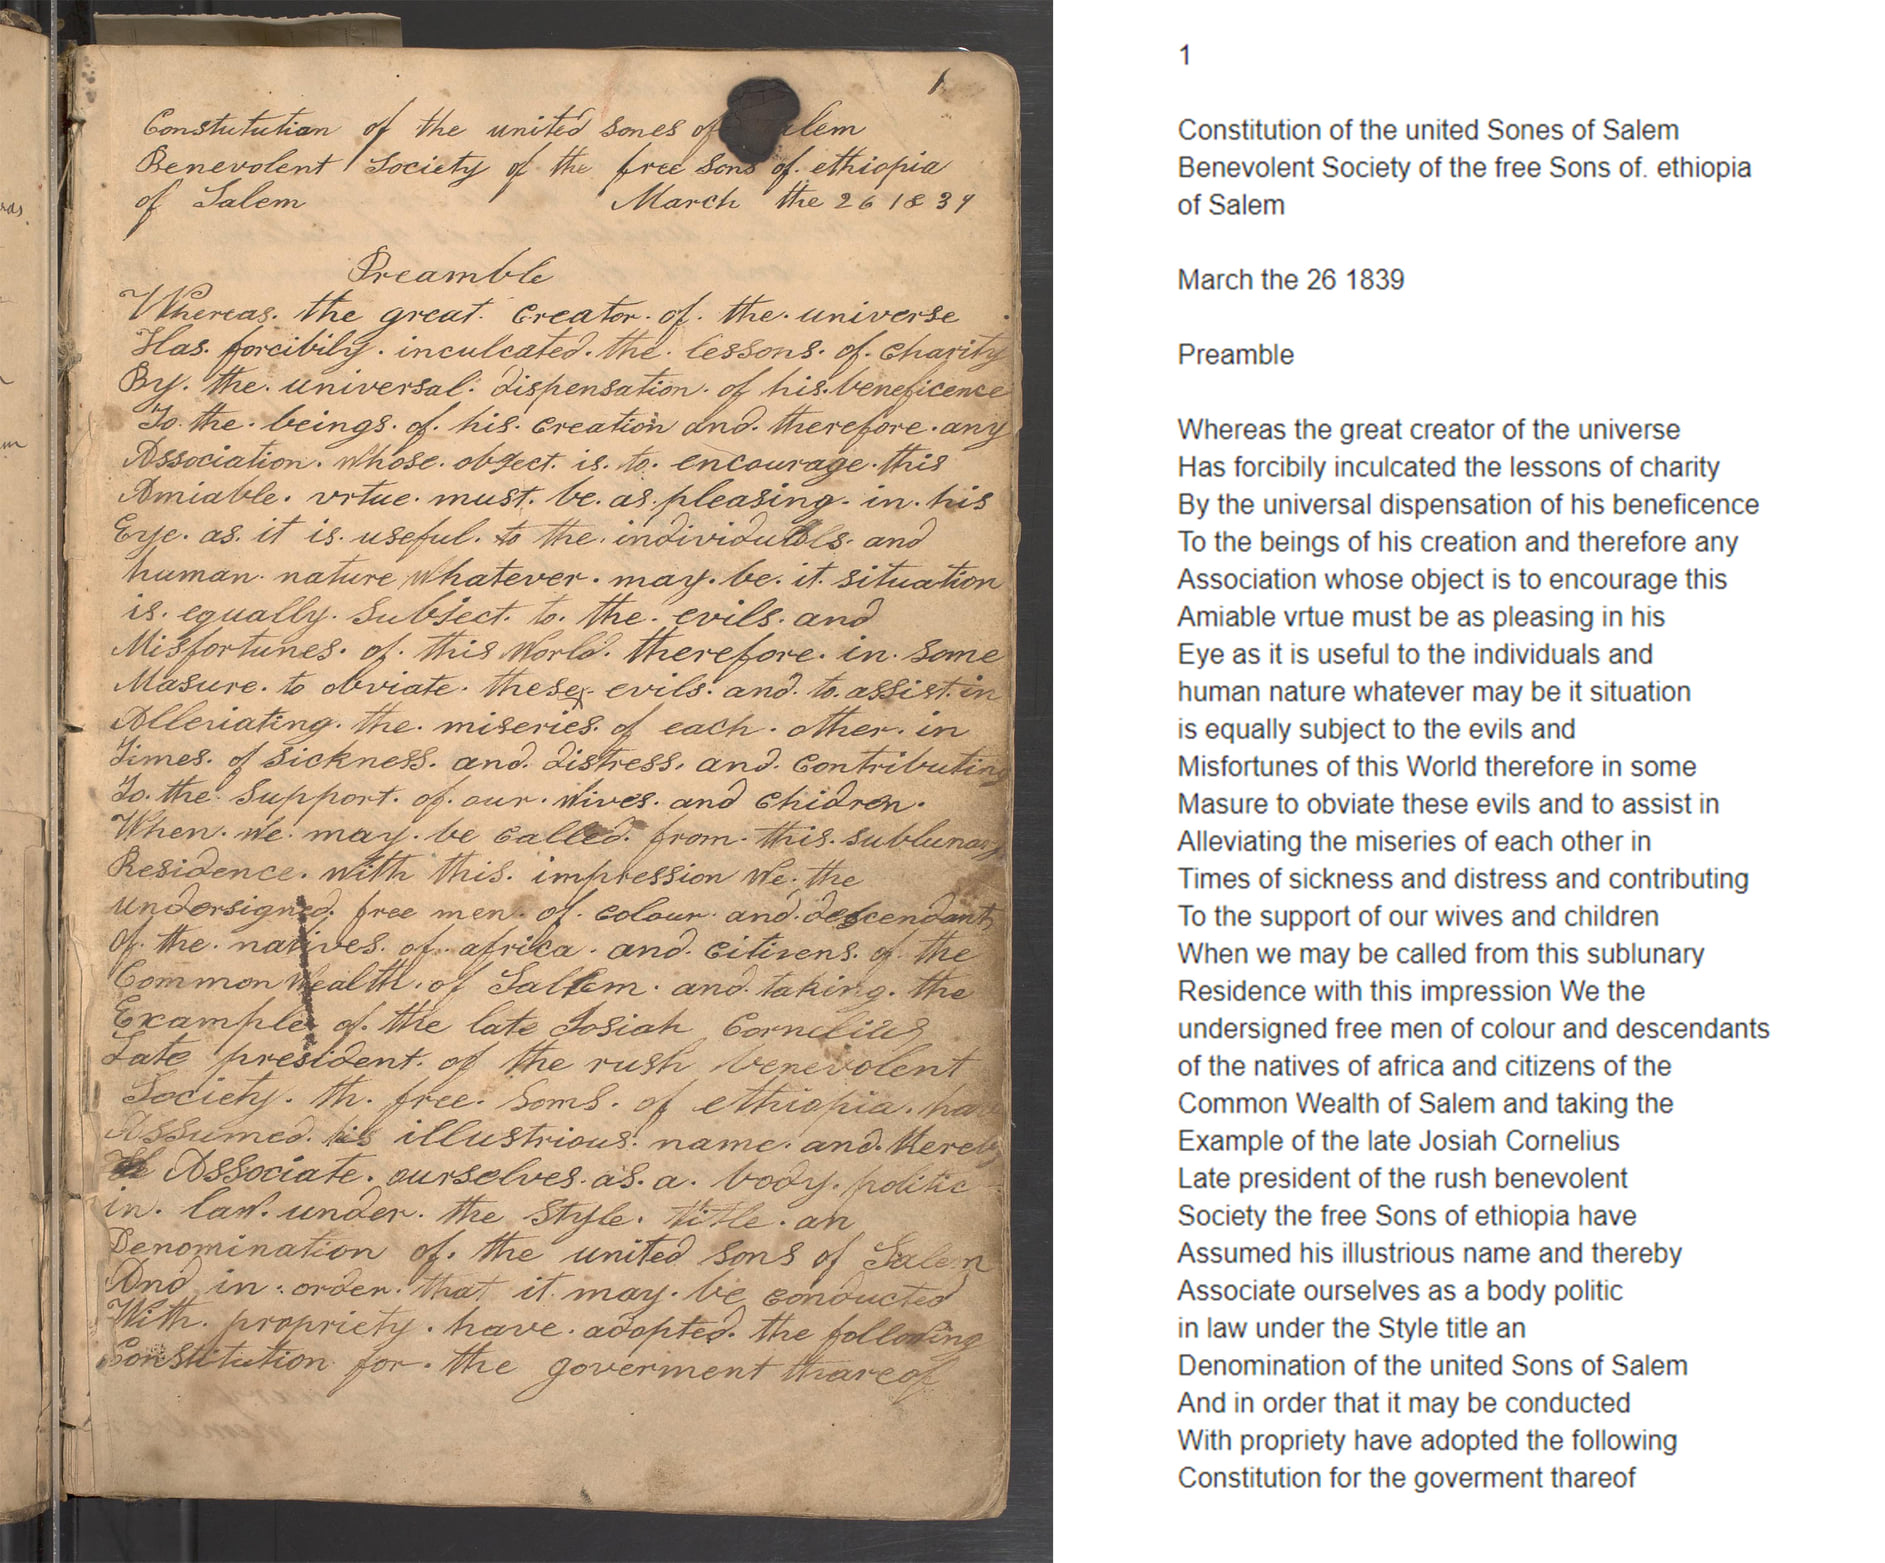 1
Constutution of the united Sones of lem
Benevolent Society of the free Sons of. ethiopia
of Salem March the 26 1839
Preamble
Whereas. the great. Creator. of. the. universe
Has. forcibily. inculcated. the. lessons. of. Charity
By. the. universal. dispensation. of his. beneficence
To the. beings. of. his. Creation and. therefore. any
Association. whose. object. is. to. encourage. this
Amiable. vrtue. must. be. as. pleasing. in. his
Eye. as. it is. useful. to the. individuals. and
human. nature whatever. may. be. it. situation
is. equally. Subject. to. the. evils. and
Misfortunes. of. this World. therefore. in. some
Masure. to obviate. these evils. and. to. assist. in
Alleviating. the. miseries. of each. other. in
Times. of Sickness. and. distress. and. Contributing
To. the. Support. of. our. Wives. and Chidren.
When. We. may. be Called. from. this. sublunary
Residence. With this. impression We. the
undersigned. free men. of. Colour. and. descendants
of. the. natives. of. africa. and. Citizens. of. the
Common Wealth. of Sallem. and. taking. the
Example of. the late Josiah Cornelius
Late president. of the rush benevolent
Society. th. free. Sons. of ethiopia. have
Assumed. his illustrious. name. and.
Associate. ourselves. as. a. body. politic
in. law. under. the Style. title. an
Denomination of. the united Sons of Salem
And in. order. that it. may. be Conducted
With. propriety. have. adopted. the following
Constitution for. the goverment thareof
ras.
m
1
Constitution of the united Sones of Salem
Benevolent Society of the free Sons of. ethiopia
of Salem
March the 26 1839
Preamble
Whereas the great creator of the universe
Has forcibily inculcated the lessons of charity
By the universal dispensation of his beneficence
To the beings of his creation and therefore any
Association whose object is to encourage this
Amiable vrtue must be as pleasing in his
Eye as it is useful to the individuals and
human nature whatever may be it situation
is equally subject to the evils and
Misfortunes of this World therefore in some
Masure to obviate these evils and to assist in
Alleviating the miseries of each other in
Times of sickness and distress and contributing
To the support of our wives and children
When we may be called from this sublunary
Residence with this impression We the
undersigned free men of colour and descendants
of the natives of africa and citizens of the
Common Wealth of Salem and taking the
Example of the late Josiah Cornelius
Late president of the rush benevolent
Society the free Sons of ethiopia have
Assumed his illustrious name and thereby
Associate ourselves as a body politic
in law under the Style title an
Denomination of the united Sons of Salem
And in order that it may be conducted
With propriety have adopted the following
Constitution for the goverment thareof